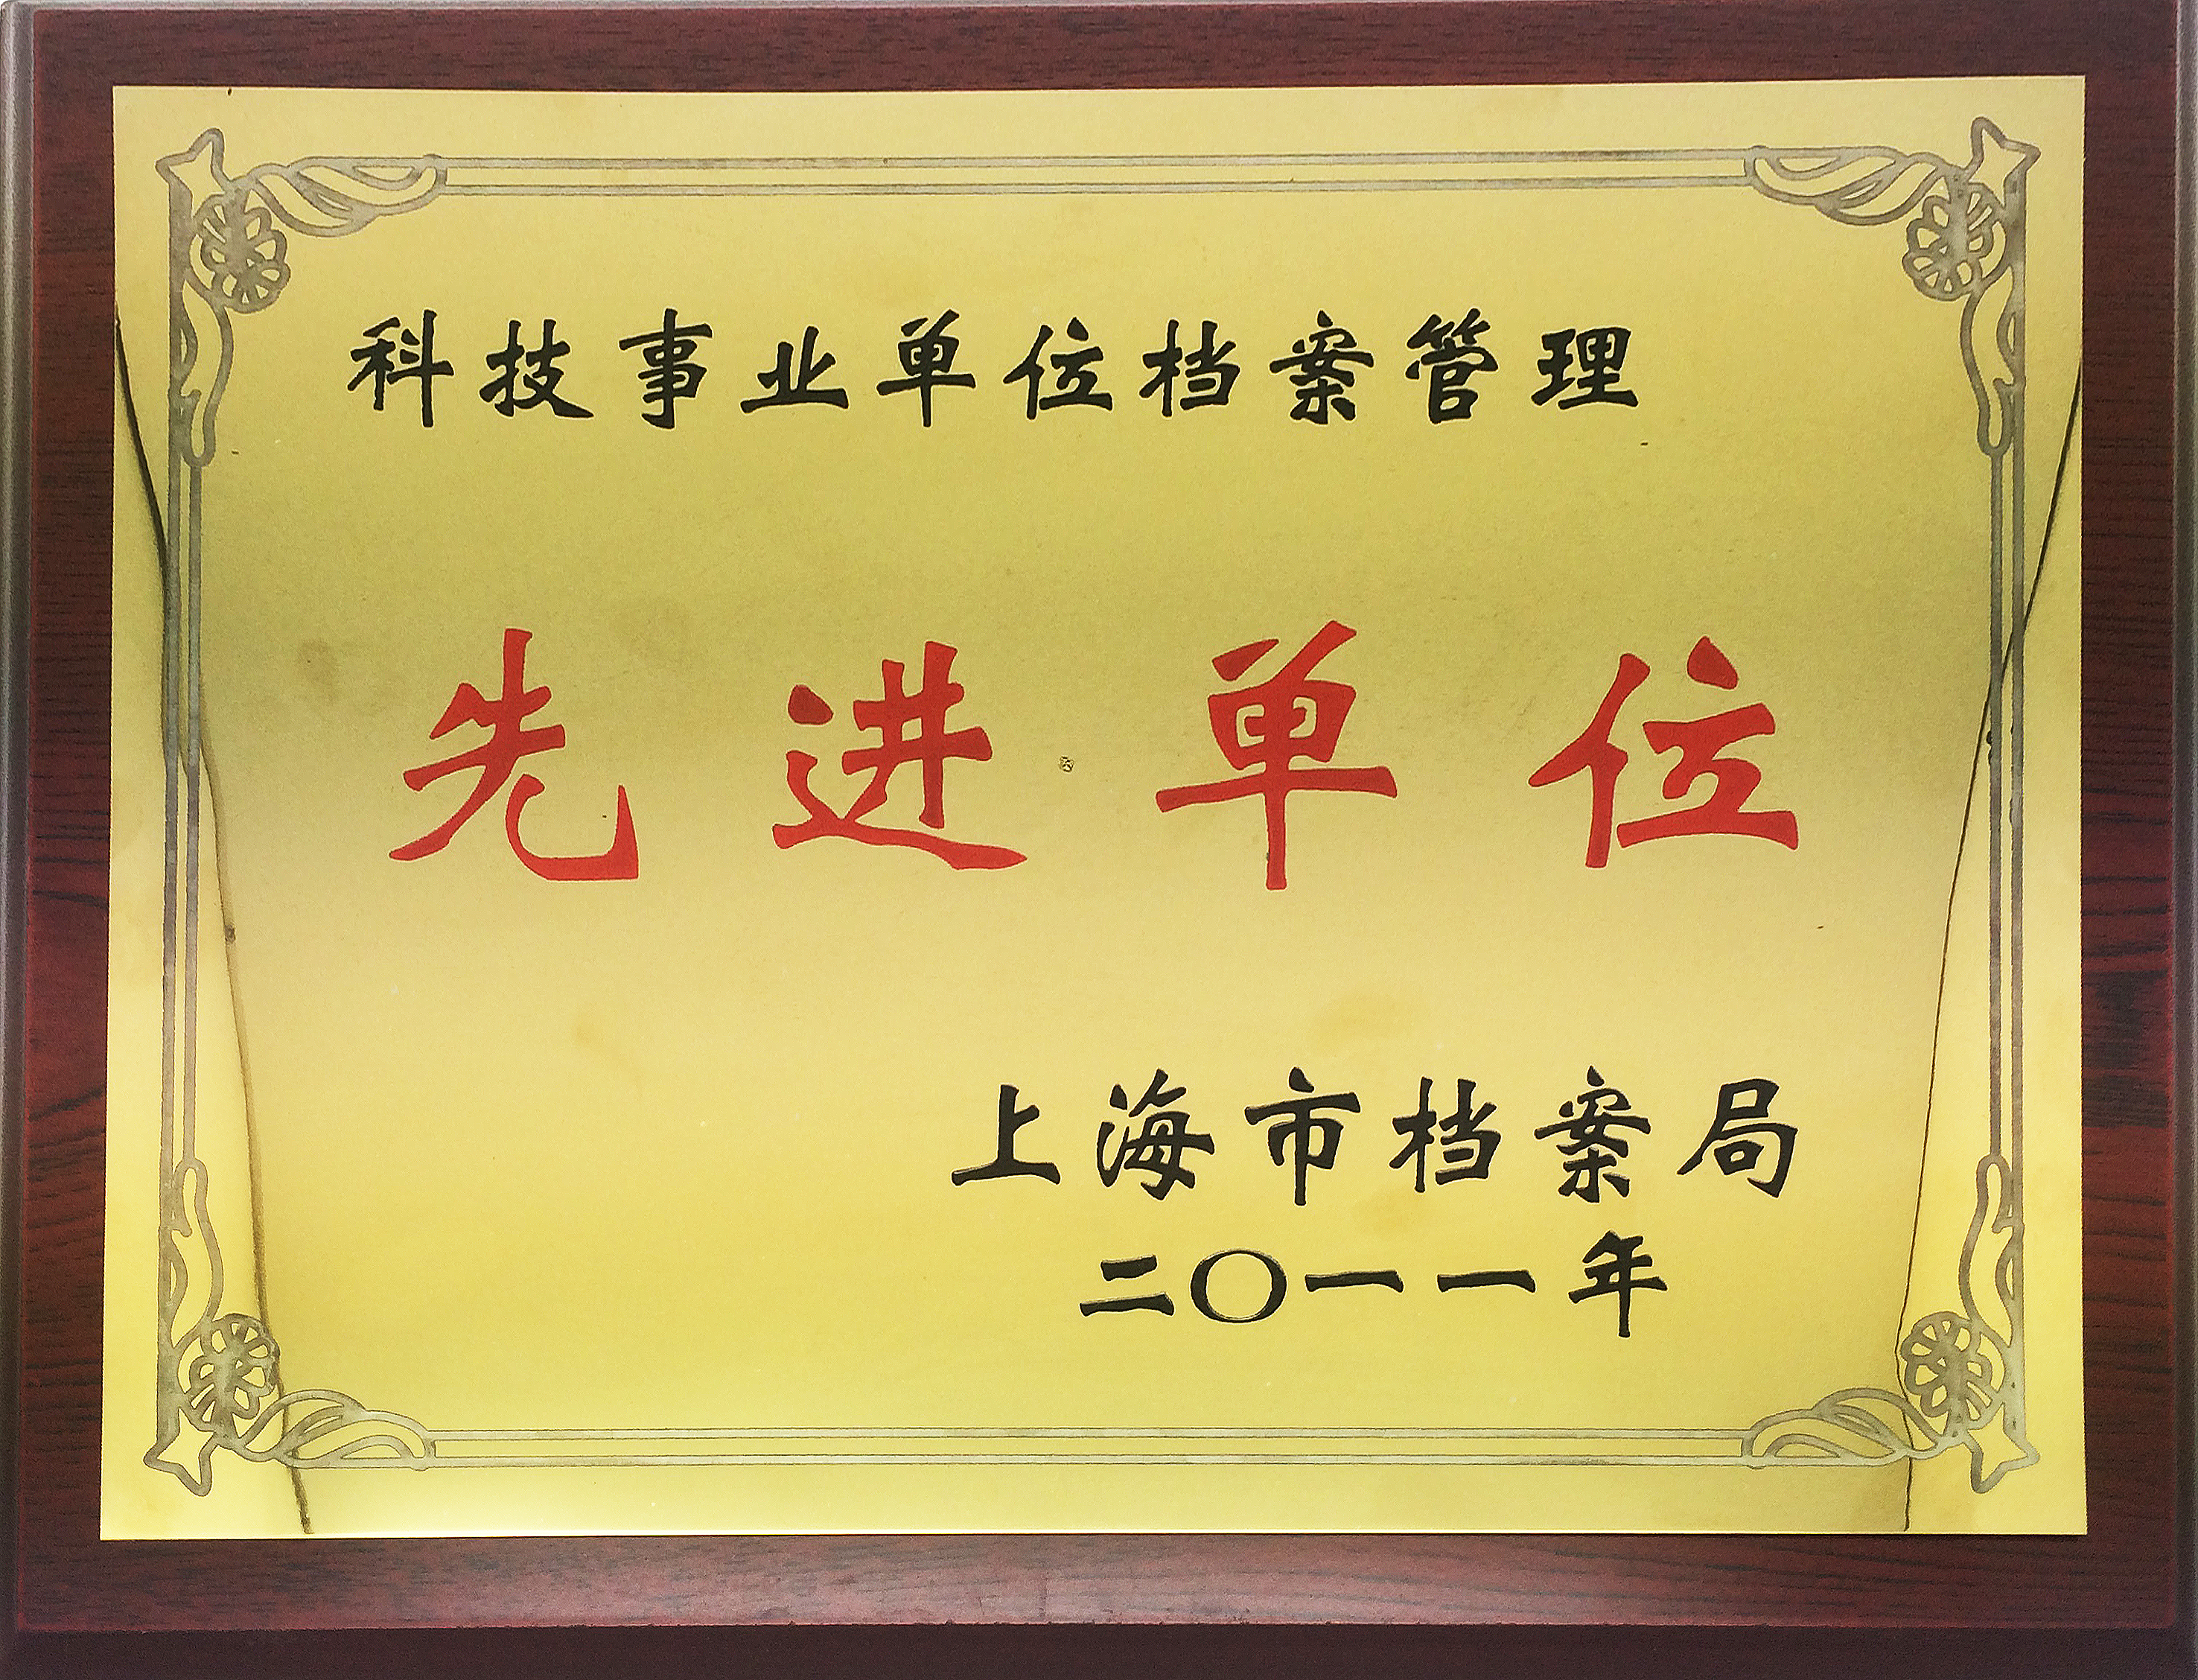 科技事业单位档案管理
先进单位
上海市档案局
二〇一一年